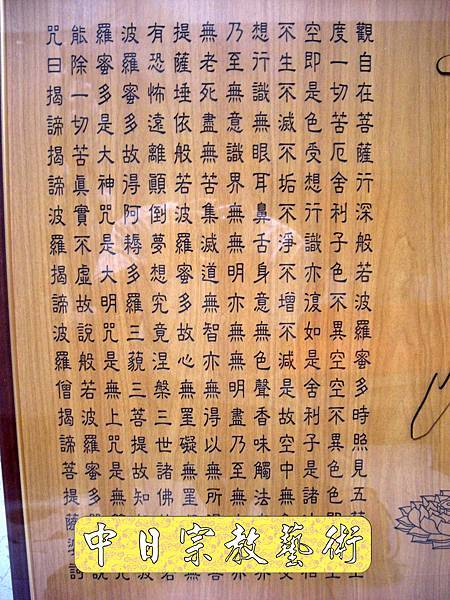 觀自在菩薩行深般若波羅蜜多時照見五
度一切苦厄舍利子色不異空空不異色色即
空即是色受想行識亦復如是舍利子是諸
不生不滅不垢不淨不增不減是故空中無
想行識無眼耳鼻舌身意無色聲香味觸法
乃至無意識界無無明亦無無明盡乃至無
無老死盡無苦集滅道無智亦無得以無所
提薩埵依般若波羅蜜多故心無罣礙無罣
有恐怖遠離顛倒夢想究竟涅槃三世諸佛
波羅蜜多故得阿耨多羅三藐三菩提故知
羅蜜多是大神咒是大明咒是無上咒是無
能除一切苦眞實不虛故說般若波羅蜜多
咒曰揭諦揭諦波羅揭諦波羅僧揭諦菩提薩婆訶
中日宗教藝術